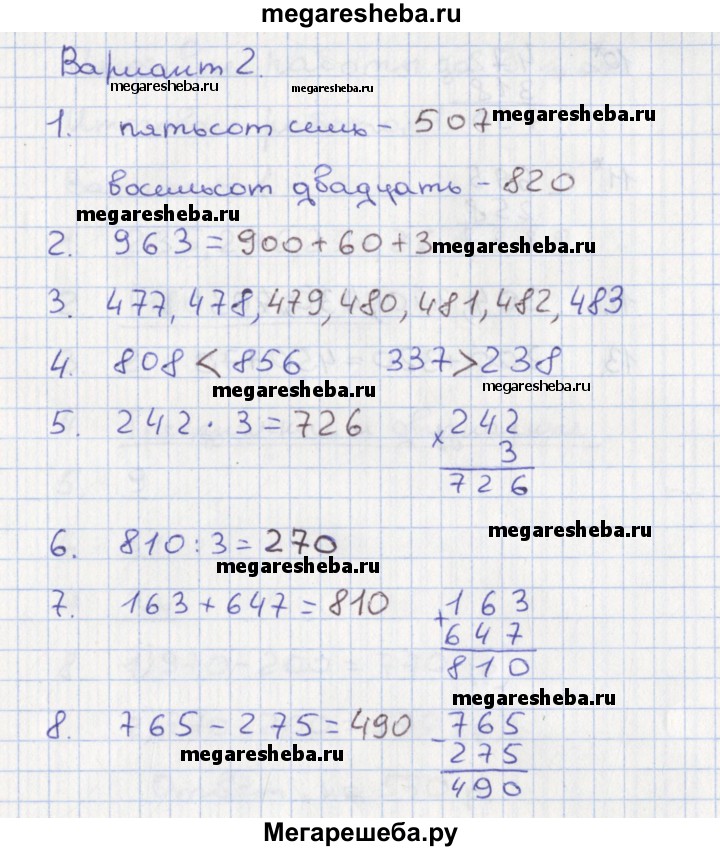 megaresheba.ru
Вариант 2.
megaresheba.ru megaresheba.ru
1. пятьсот семь - 507 megaresheba.ru
восемьсот двадцать - 820
megaresheba.ru
2. 963 = 900 + 60 + 3 megaresheba.ru
3. 477, 478, 479, 480, 481, 482, 483
4. 808 < 856 337 > 238
megaresheba.ru megaresheba.ru
5. 242 · 3 = 726 × 242
3
726
megaresheba.ru
6. 810 : 3 = 270
megaresheba.ru
7. 163 + 647 = 810 + 163
647
810
megaresheba.ru
8. 765 - 275 = 490 - 765
megaresheba.ru 275
490
Мегарешеба.ру